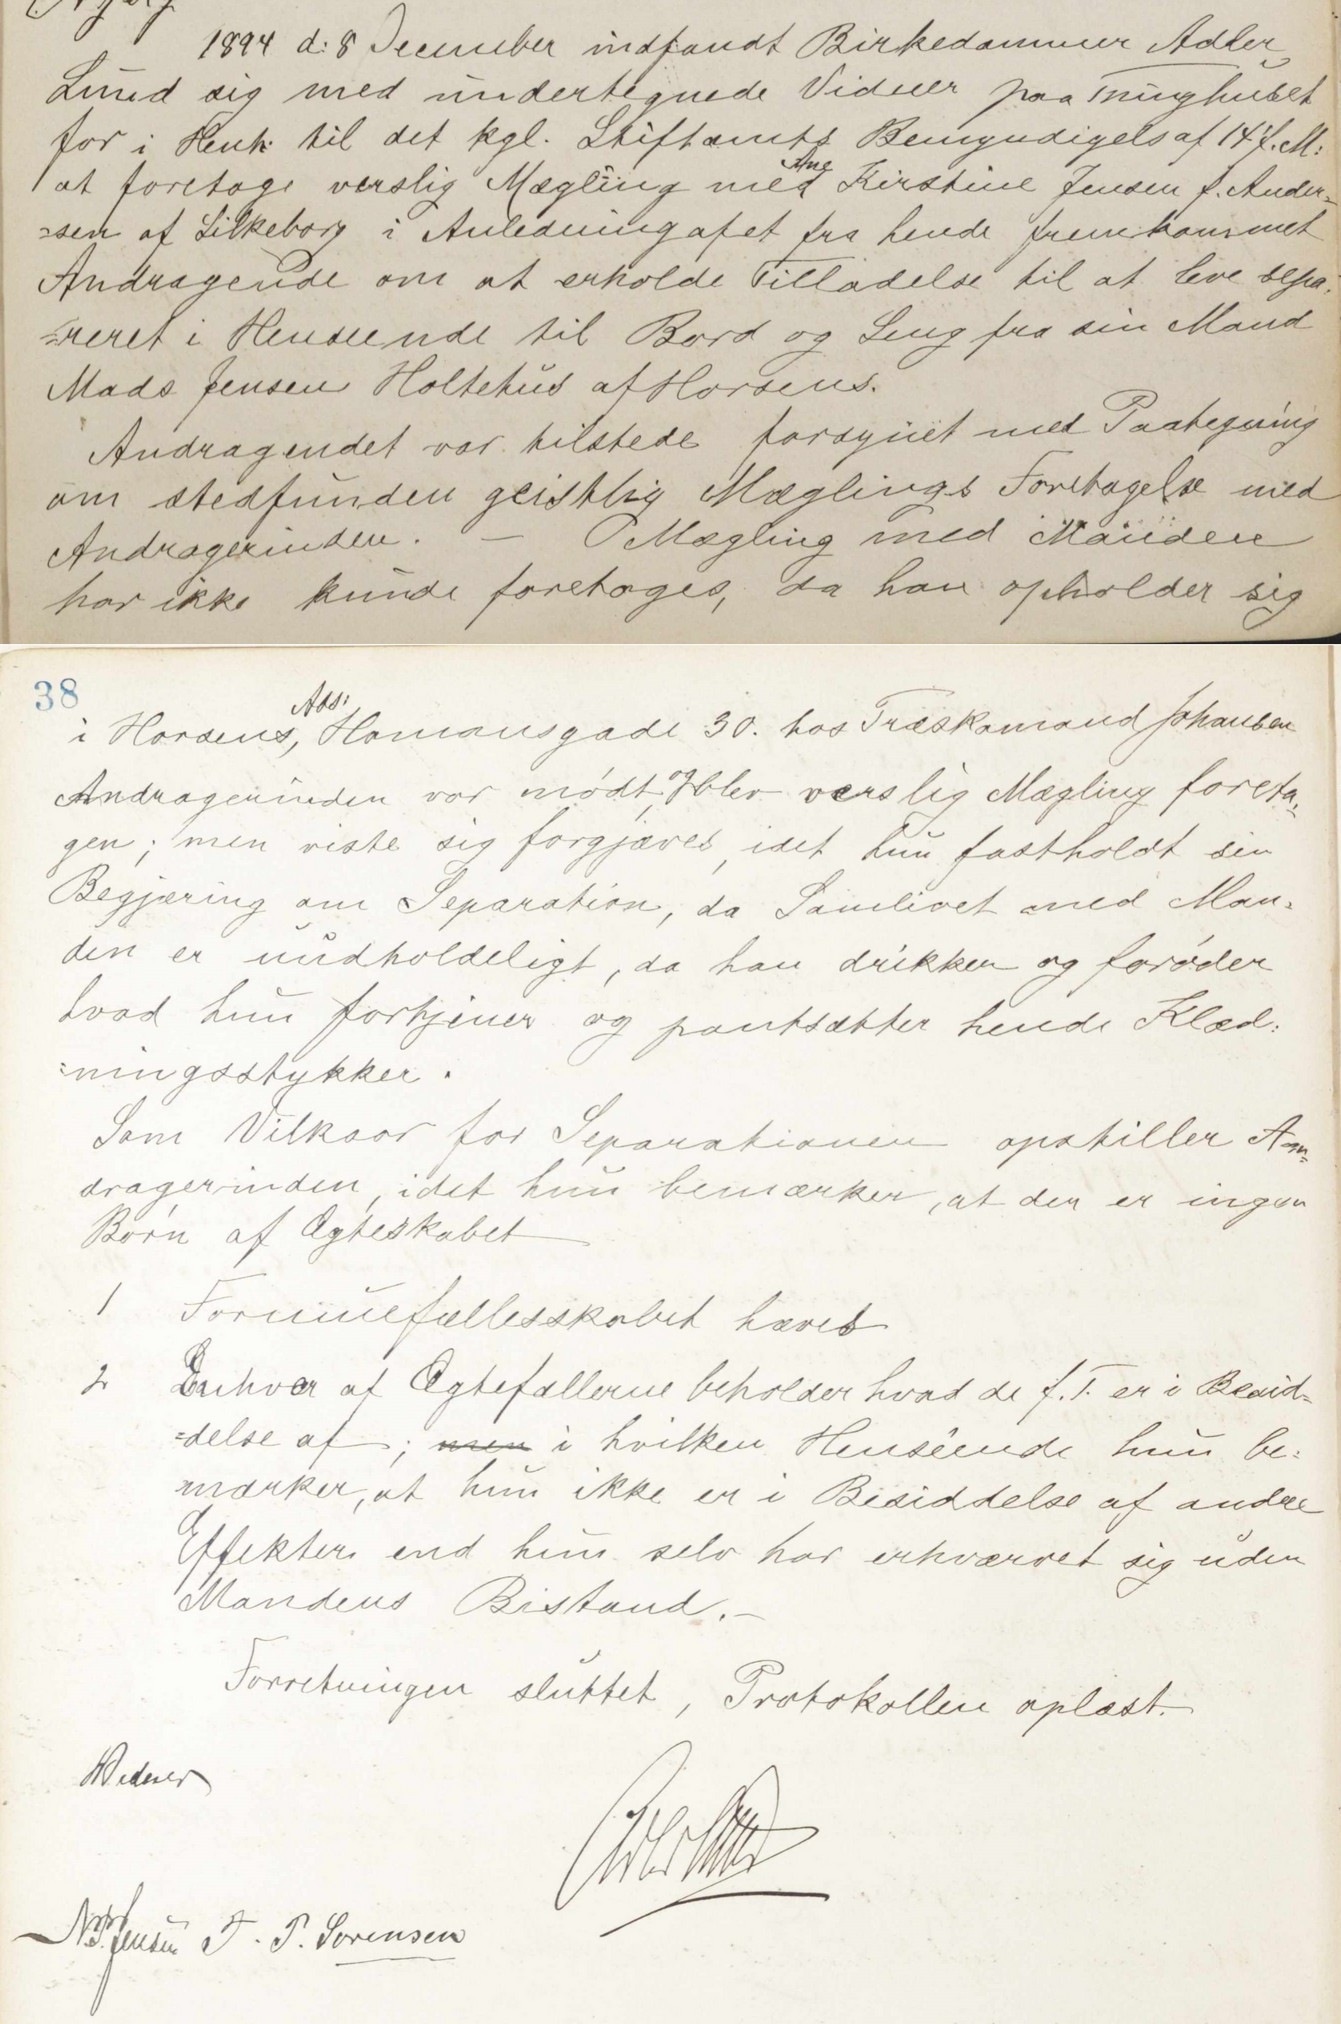 1894 d: 8 December indfandt Birkedommer Adler
Lund sig med undertegnede Vidner paa Thinghuset
for i Henh. til det kgl. Stiftamts Bemyndigelse af 14 f. M:
at foretage verslig Mægling med Ane Kirstine Jensen f. Ander=
=sen af Silkeborg i Anledning af et fra hende fremkommet
Andragende om at erholde Tilladelse til at leve sepa=
=reret i Henseende til Bord og Seng fra sin Mand
Mads Jensen Holtehus af Horsens.
Andragendet var tilstede forsynet med Paategning
om stedfunden geistlig Mæglings Foretagelse med
Andragerinden. — Mægling med Manden
har ikke kunde foretages, da han opholder sig
38
i Horsens, Ads: Homansgade 30. hos Træskomand Johansen
Andragerinden var mødt, og blev verslig Mægling foreta=
gen; men viste sig forgjæves, idet hun fastholdt sin
Begjæring om Separation, da Samlivet med Man=
den er uudholdeligt, da han drikker og forøder
hvad hun fortjener og pantsætter hende Klæd=
=ningsstykker.
Som Vilkaar for Separationen opstiller An=
dragerinden, idet hun bemærker, at der er ingen
Børn af Ægteskabet
1 Formuefællesskabet hæves
2 Enhver af Ægtefællerne beholder hvad de f. T. er i Besid=
=delse af; men i hvilken Henseende hun be=
mærker, at hun ikke er i Besiddelse af andre
Effekter end hun selv har erhvervet sig uden
Mandens Bistand. —
Forretningen sluttet, Protokollen oplæst.
Vidner
Adler Lund
N. P. Jensen J. P. Sørensen